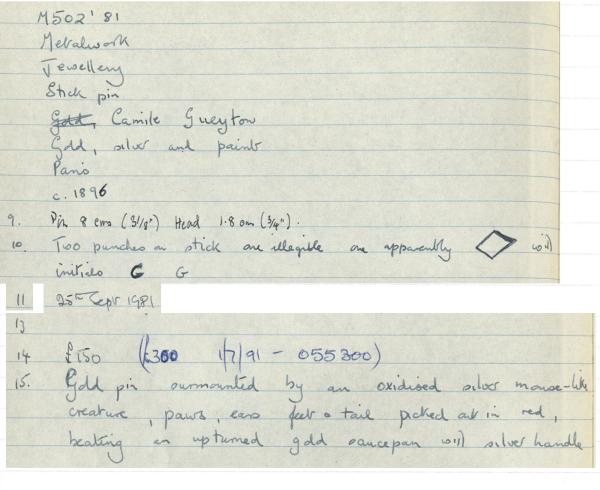 M502' 81
Metalwork
Jewellery
Stick pin
Gold, Camile Gueyton
Gold, silver and paint
Paris
c. 1896
9. Pin 8 cms (3 1/8") Head 1.8 cm (3/4").
10. Two punches on stick one illegible one apparently with
initials G G
11 25th Sept 1981
13
14 £150 (£300 1/7/91 - 055300)
15. Gold pin surmounted by an oxidised silver mouse-like
creature, paws, ears feet & tail picked out in red,
beating an upturned gold saucepan with silver handle